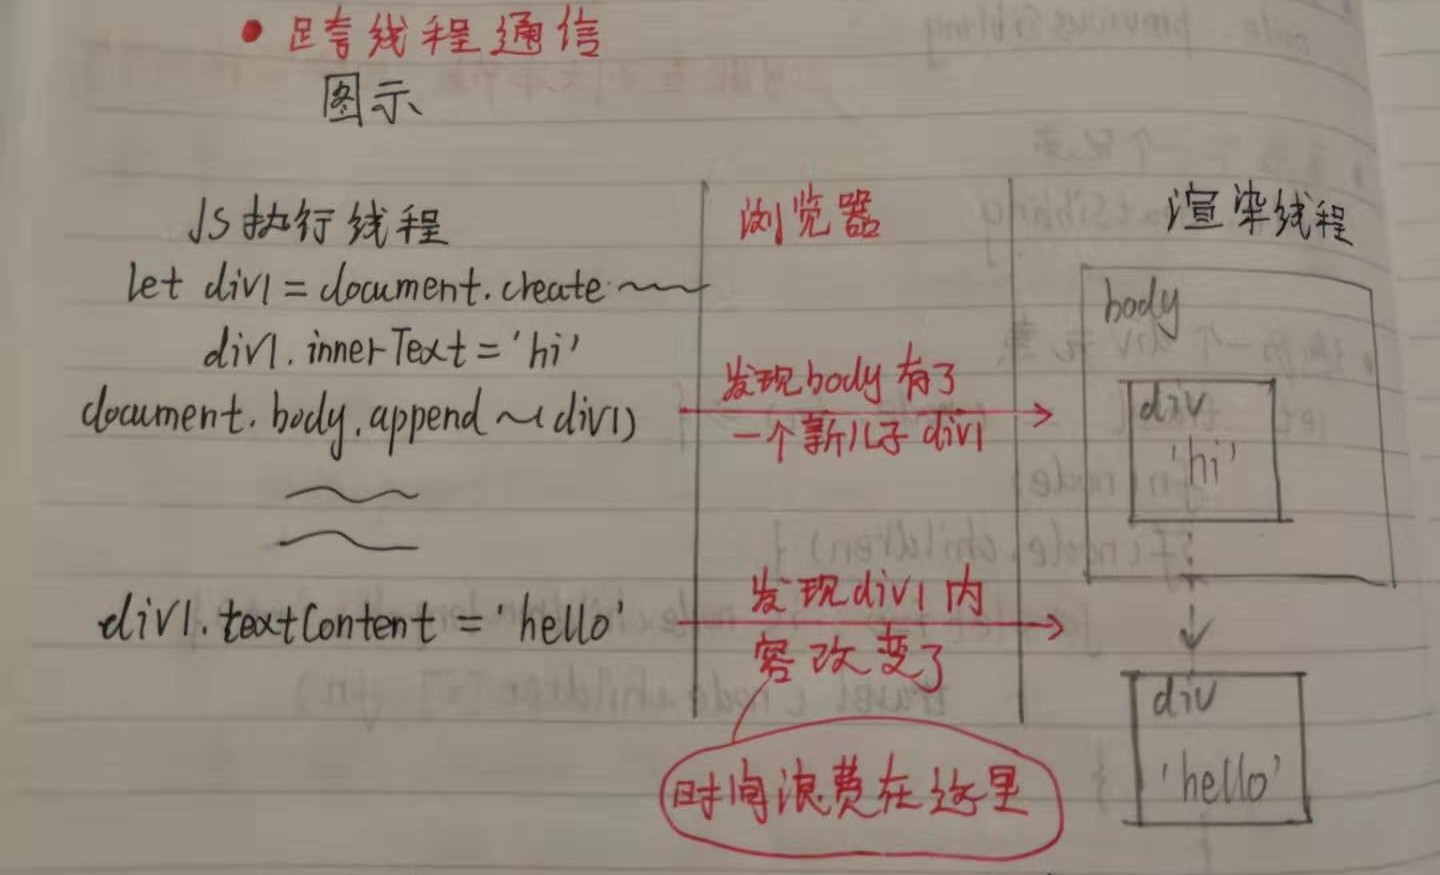 • 跨线程通信
图示
JS执行线程
let div1 = document.create~~
div1.innerText = 'hi'
document.body.append~(div1)
div1.textContent = 'hello'
浏览器
发现body有了
一个新儿子div1
发现div1内
容改变了
时间浪费在这里
渲染线程
body
div
'hi'
div
'hello'